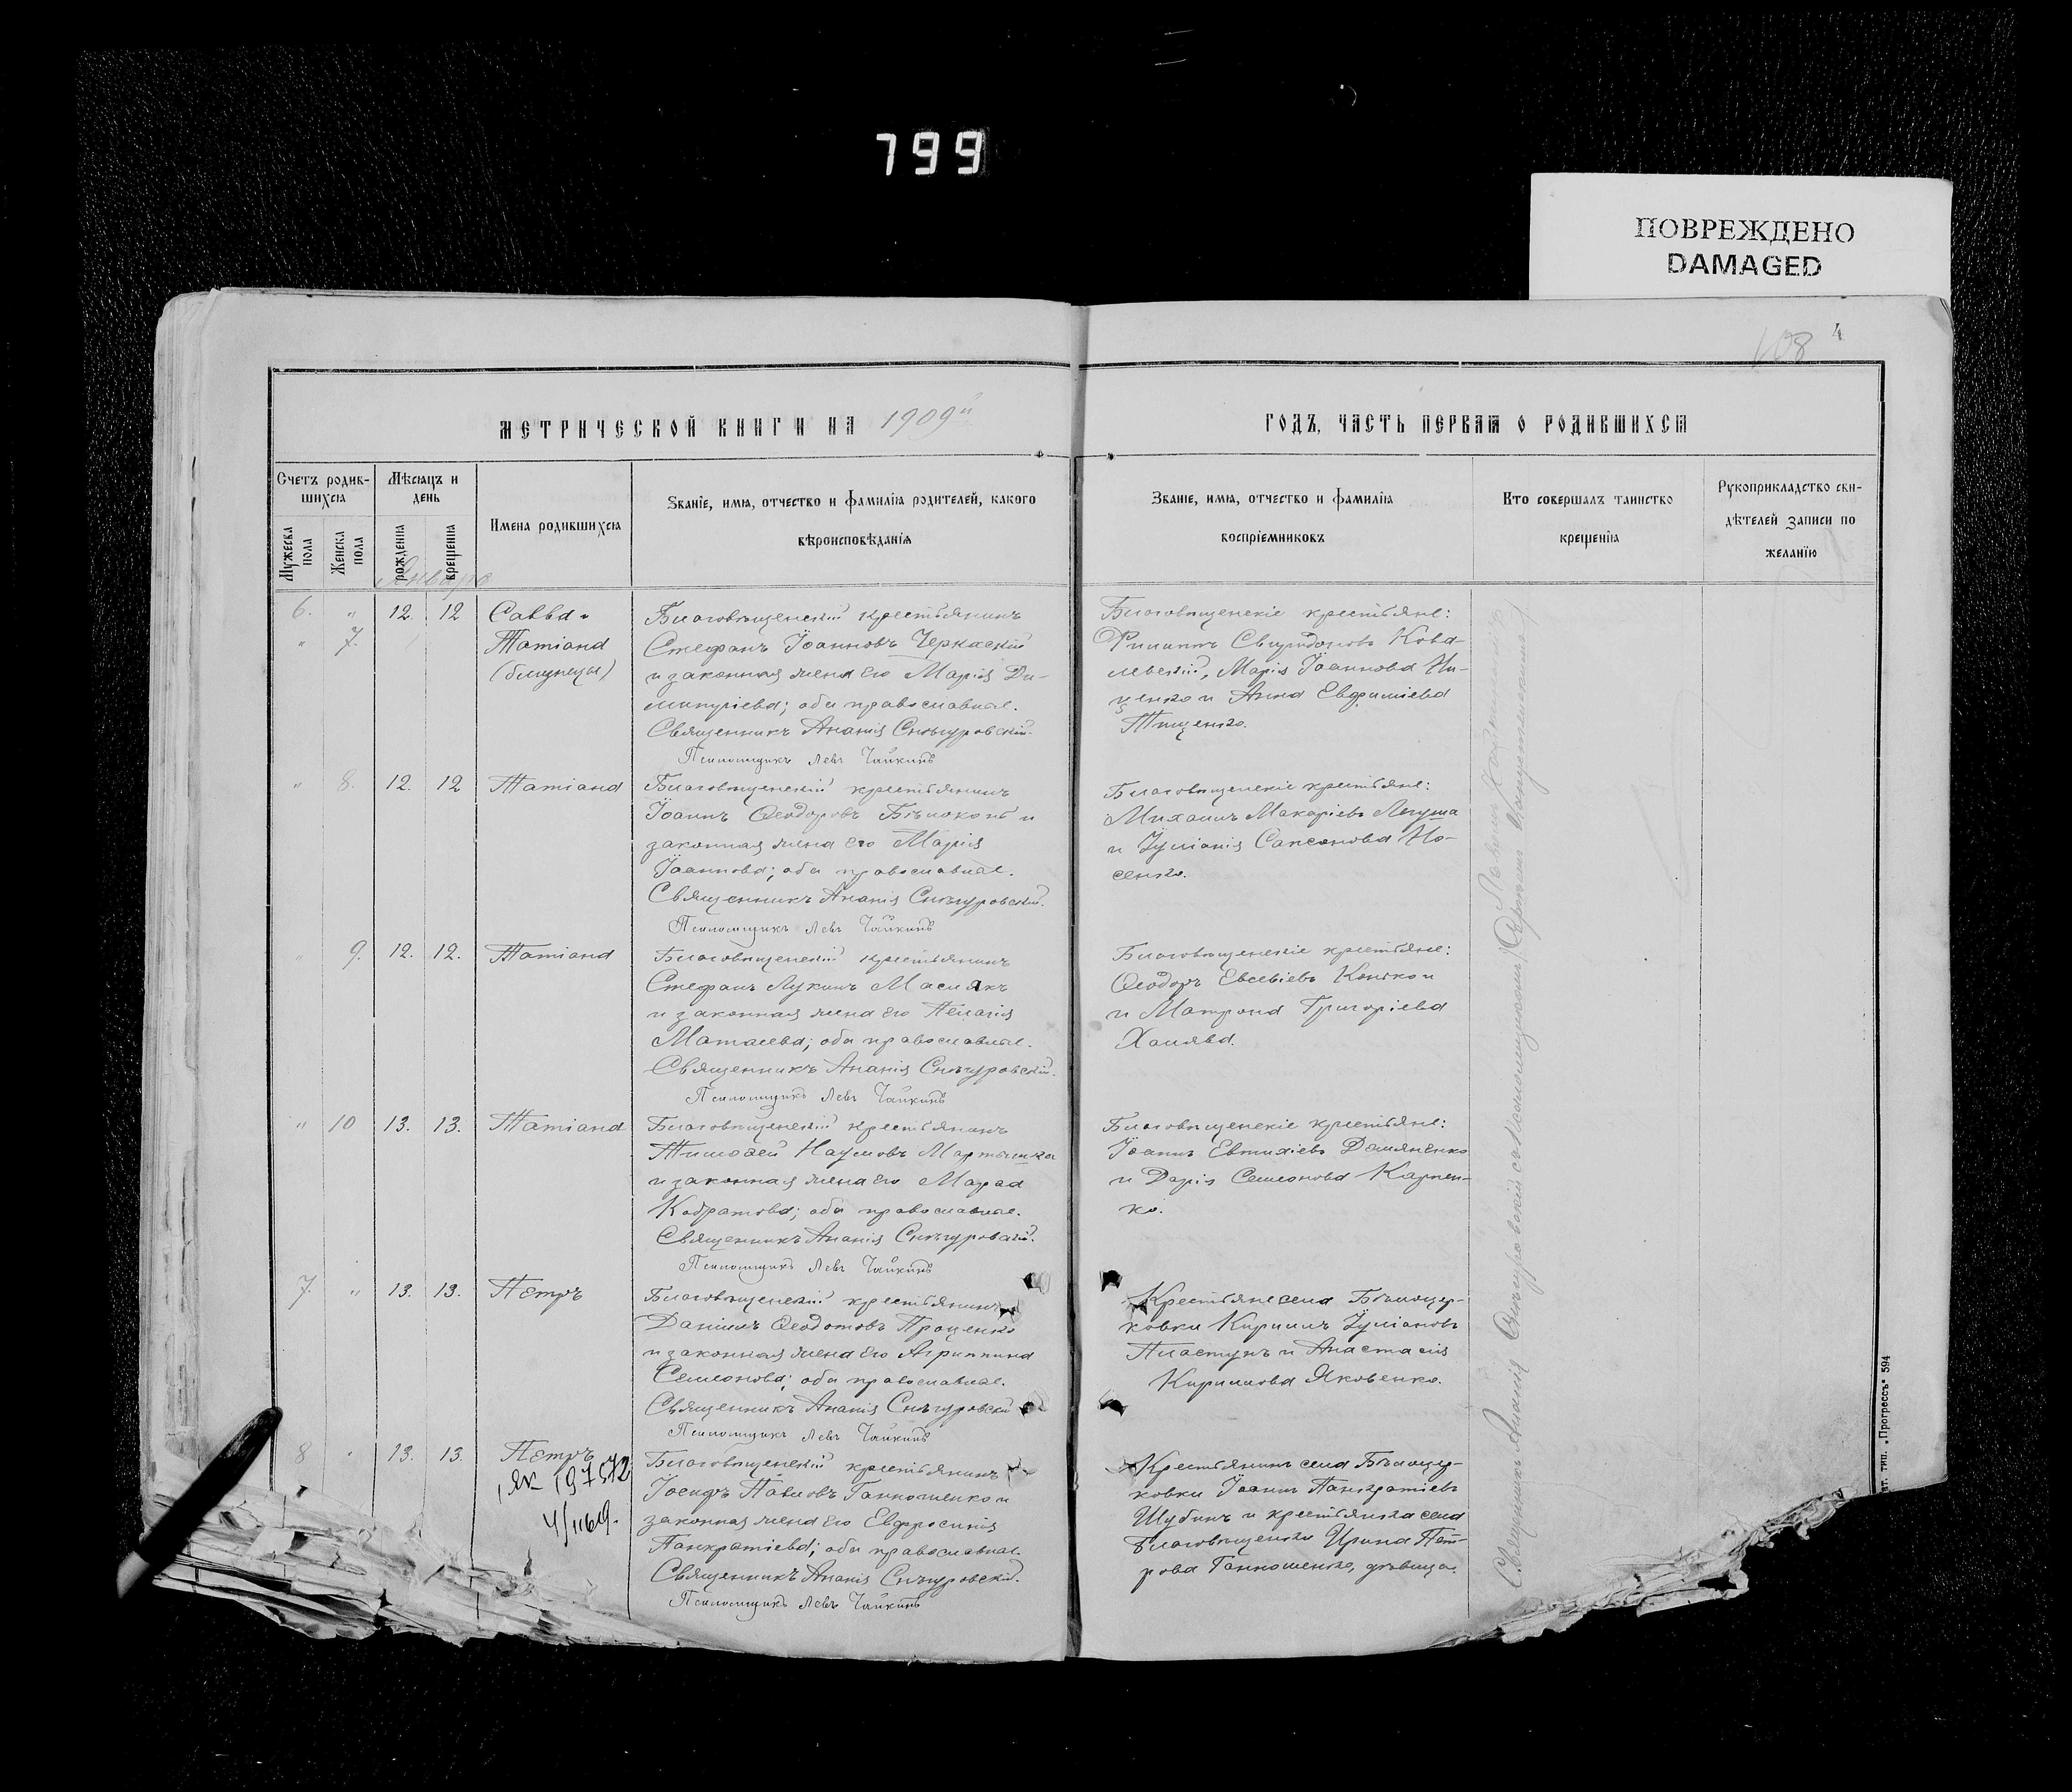 799
ПОВРЕЖДЕНО
DAMAGED
108 4
МЕТРИЧЕСКОЙ КНИГИ НА 1909й
ГОДЪ, ЧАСТЬ ПЕРВАЯ О РОДИВШИХСЯ
Счетъ родив-
шихся
Мужеска пола
Женска пола
Мѣсяцъ и
день
рожденія
крещенія
Имена родившихся
Званіе, имя, отчество и фамилія родителей, какого
вѣроисповѣданія
Званіе, имя, отчество и фамилія
воспріемниковъ
Кто совершалъ таинство
крещенія
Рукоприкладство сви-
дѣтелей записи по
желанію
Январь
6. " 12 12 Савва и
" 7. Татіана
(близнецы)
Благовѣщенскій крестьянинъ
Стефанъ Іоанновъ Черкаскій
и законная жена его Марія Ди-
митріева; оба православные.
Священникъ Ананія Снѣгуровскій.
Псаломщикъ Левъ Чайкинъ
Благовѣщенскіе крестьяне:
Филиппъ Свиридоновъ Кова-
левскій, Марія Іоаннова Ни-
ценко и Анна Евфиміева
Тищенко.
" 8. 12. 12 Татіана
Благовѣщенскій крестьянинъ
Іоаннъ Ѳеодоровъ Бѣлоконь и
законная жена его Марія
Іоаннова; оба православные.
Священникъ Ананія Снѣгуровскій.
Псаломщикъ Левъ Чайкинъ
Благовѣщенскіе крестьяне:
Михаилъ Макаріевъ Легуша
и Іуліанія Самсонова Но-
сенко.
" 9. 12. 12. Татіана
Благовѣщенскій крестьянинъ
Стефанъ Лукинъ Маслякъ
и законная жена его Пелагія
Матѳеева; оба православные.
Священникъ Ананія Снѣгуровскій.
Псаломщикъ Левъ Чайкинъ
Благовѣщенскіе крестьяне:
Ѳеодоръ Евсевіевъ Конько и
и Матрона Григоріева
Халява.
" 10 13. 13. Татіана
Благовѣщенскій крестьянинъ
Тимоѳей Наумовъ Мартышка
и законная жена его Марѳа
Кодратова; оба православные.
Священникъ Ананія Снѣгуровскій.
Псаломщикъ Левъ Чайкинъ
Благовѣщенскіе крестьяне:
Іоаннъ Евтихіевъ Демяненко
и Дарія Семеонова Карпен-
ко.
7. " 13. 13. Петръ
Благовѣщенскій крестьянинъ
Даніилъ Ѳеодотовъ Проценко
и законная жена его Агриппина
Семеонова; оба православные.
Священникъ Ананія Снѣгуровскій
Псаломщикъ Левъ Чайкинъ
Крестьяне села Бѣлоцер-
ковки Кириллъ Іуліановъ
Пластунъ и Анастасія
Кириллова Яковенко.
8 " 13. 13. Петръ
197572
Благовѣщенскій крестьянинъ
Іосифъ Павловъ Ганношенко и
законная жена его Евфросинія
Панкратіева; оба православные.
Священникъ Ананія Снѣгуровскій.
Псаломщикъ Левъ Чайкинъ
Крестьянинъ села Бѣлоцер-
ковки Іоаннъ Панкратіевъ
Шубинъ и крестьянка села
Благовѣщенки Ирина Пет-
рова Ганношенко, дѣвица.
Священникъ Ананія Снѣгуровскій съ псаломщикомъ
тип. „Прогрессъ" 594